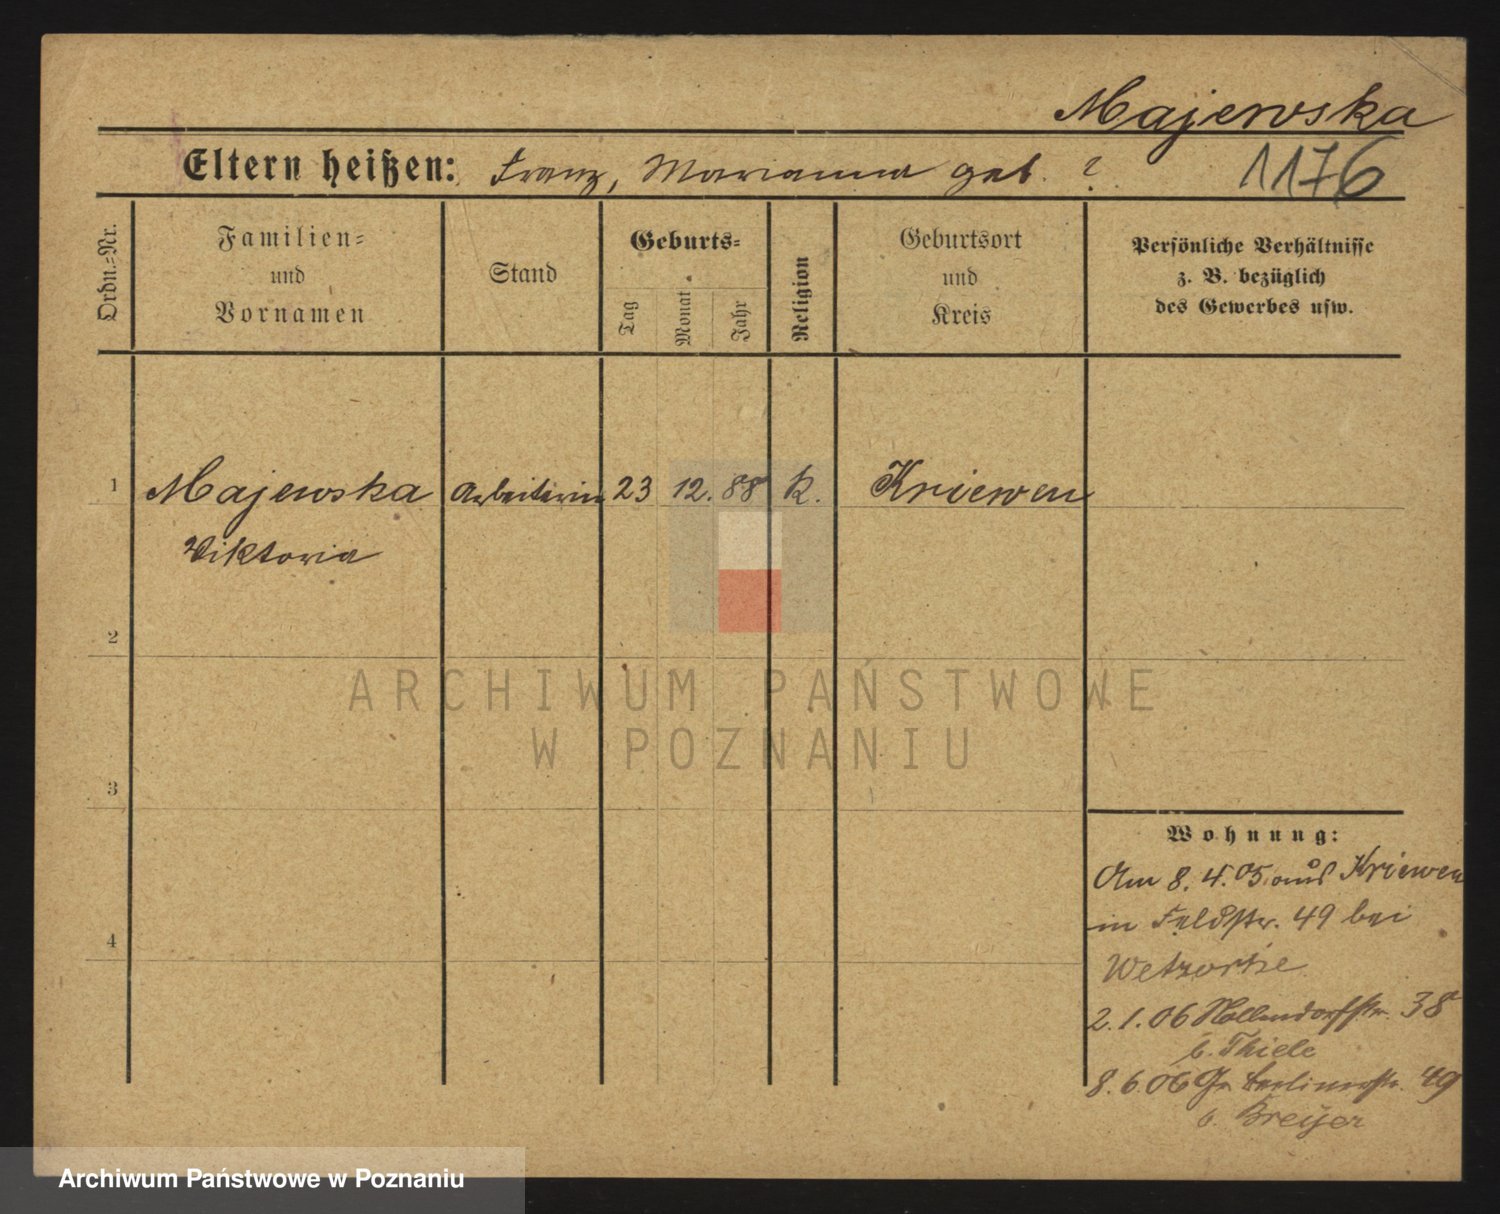 Majewska
Eltern heißen: Franz, Marianna geb. ?
1176
Ordn.-Nr.
Familien- und Vornamen
Stand
Geburts-
Tag
Monat
Jahr
Religion
Geburtsort und Kreis
Persönliche Verhältnisse
z. B. bezüglich
des Gewerbes usw.
1 Majewska Arbeiterin 23 12. 88 k. Kriewen
Viktoria
2
3
4
ARCHIWUM PAŃSTWOWE
W POZNANIU
Wohnung:
Am 8. 4. 05 aus Kriewen
in Feldstr. 49 bei
2. 1. 06 Nollendorfstr. 38
b. Thiele
8. 6. 06 Gr. Berlinerstr. 49
b. Breyer
Archiwum Państwowe w Poznaniu